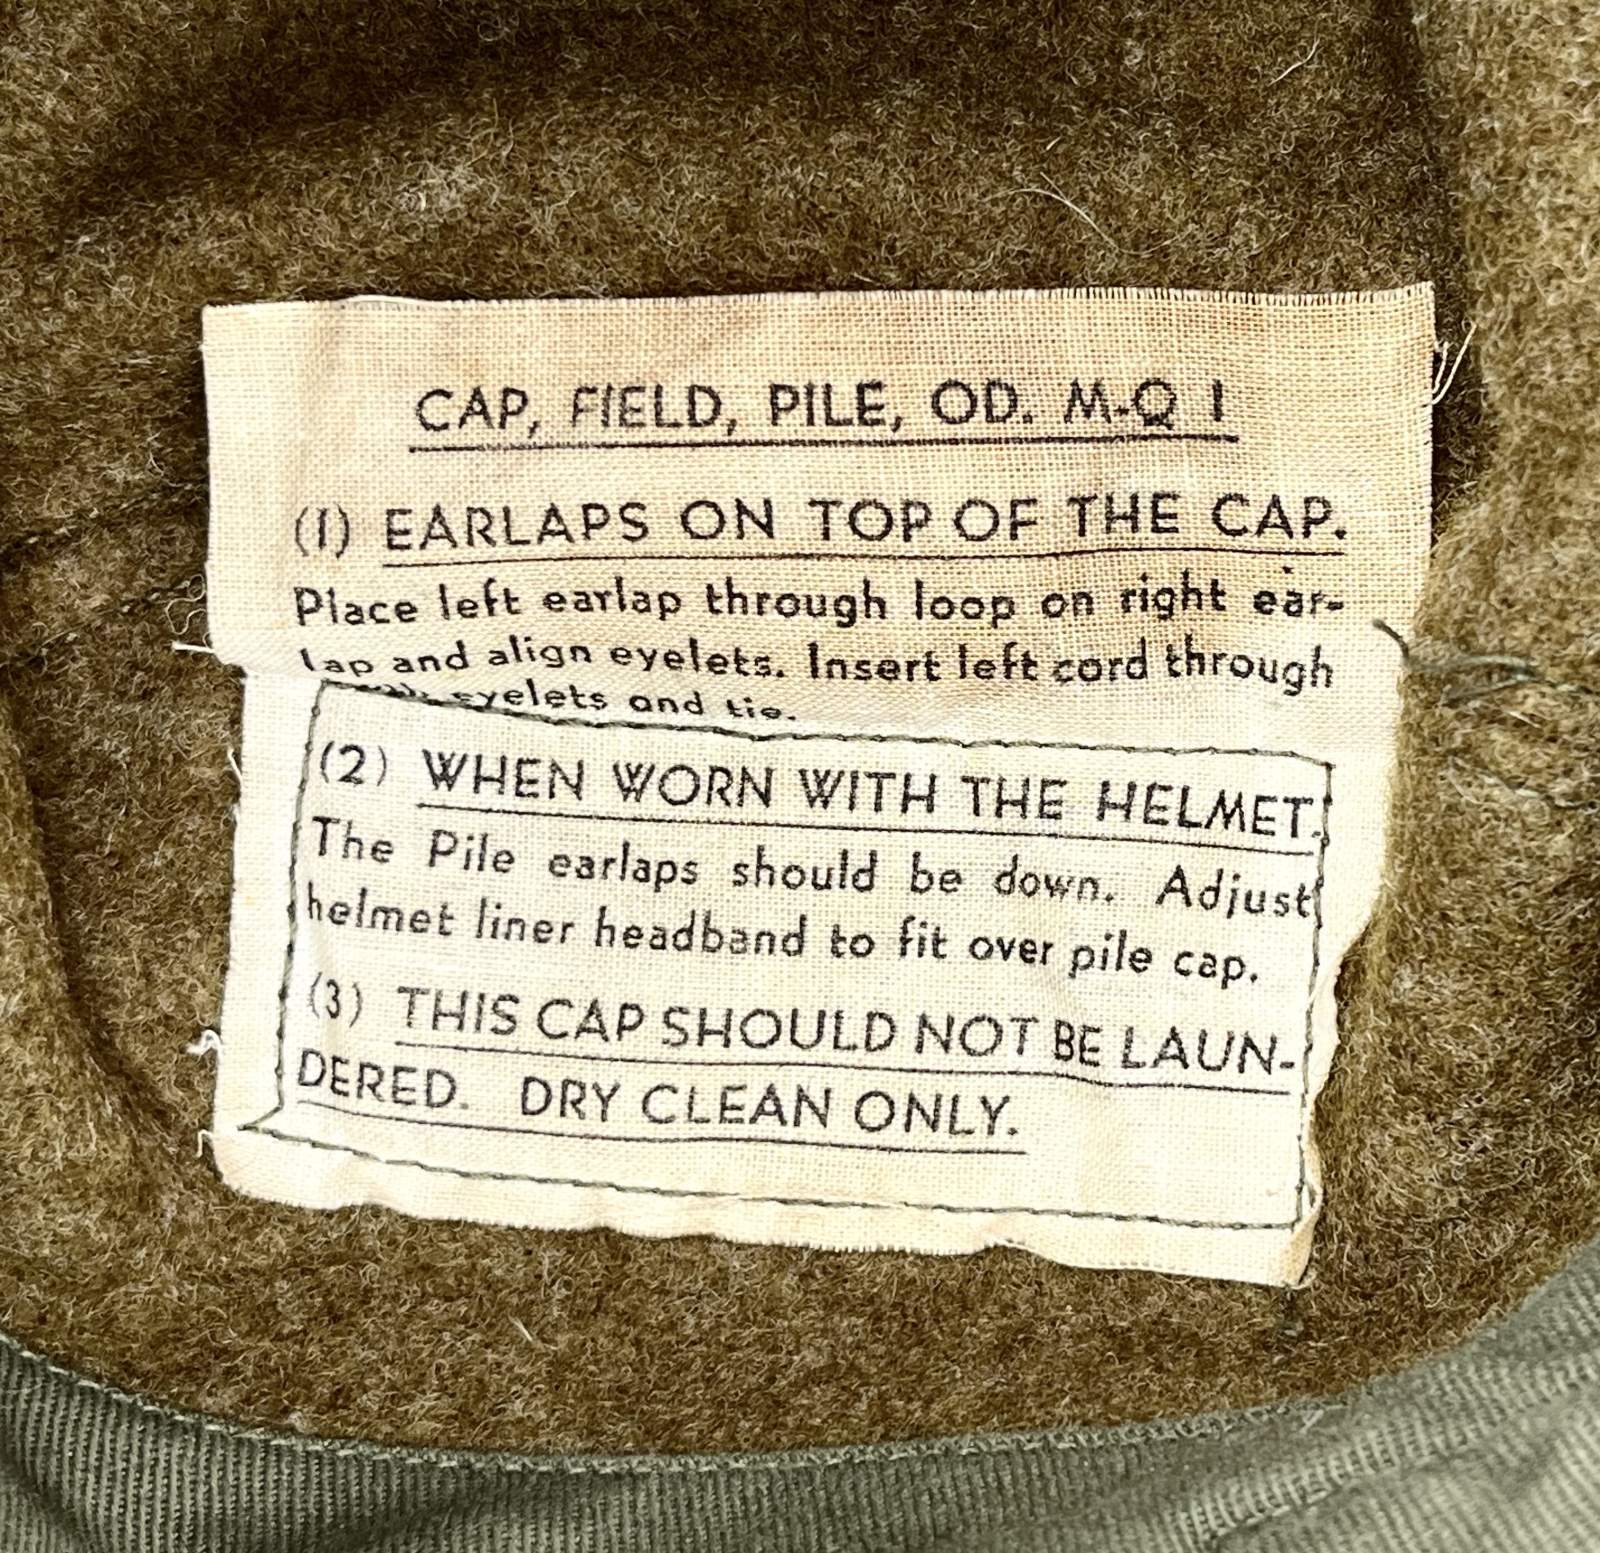 CAP, FIELD, PILE, OD. M-Q 1
(1) EARLAPS ON TOP OF THE CAP.
Place left earlap through loop on right ear-
lap and align eyelets. Insert left cord through
eyelets and tie.
(2) WHEN WORN WITH THE HELMET.
The Pile earlaps should be down. Adjust
helmet liner headband to fit over pile cap.
(3) THIS CAP SHOULD NOT BE LAUN-
DERED. DRY CLEAN ONLY.